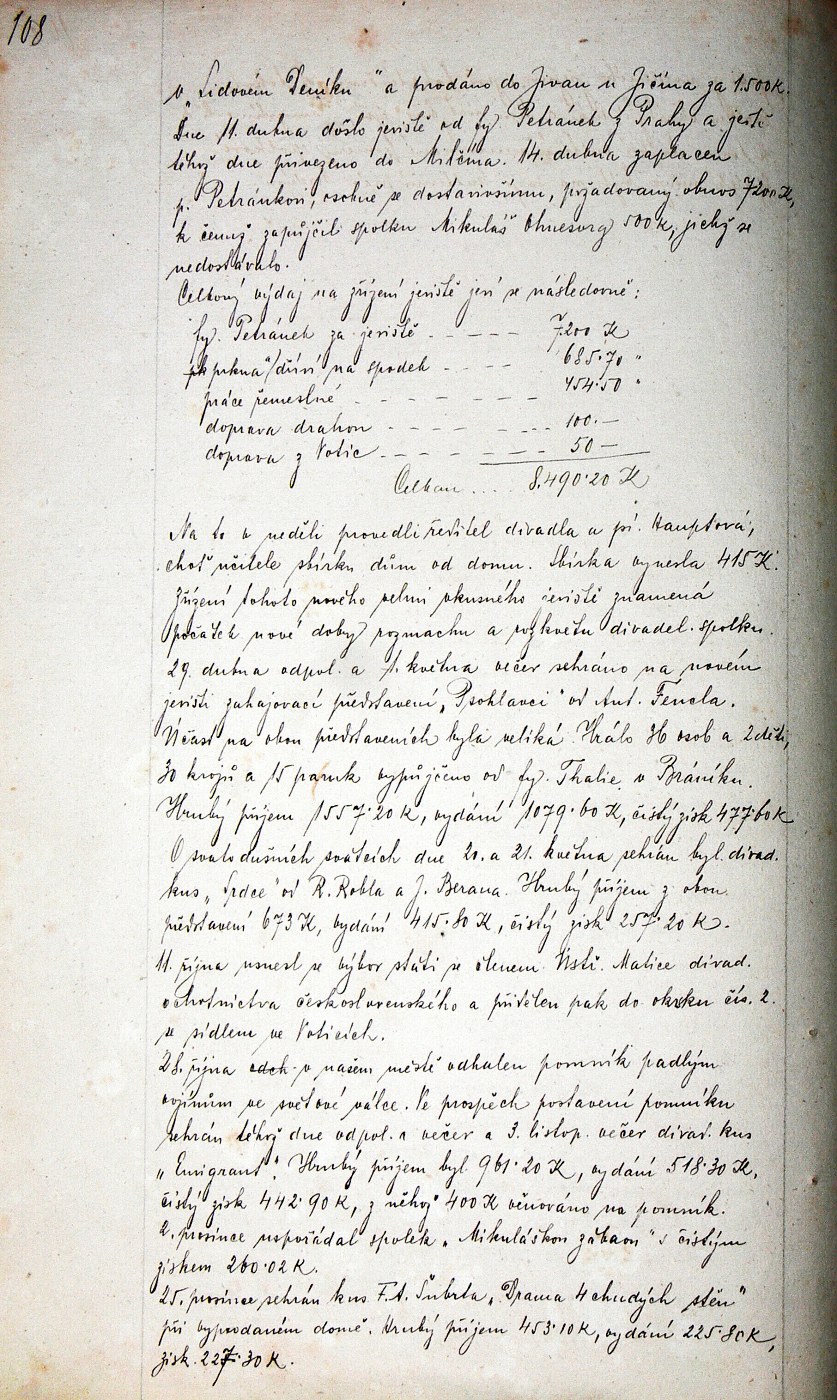 108
v „Lidovém Deníku" a prodáno do Jivan u Jičína za 1.500K.
Dne 11. dubna došlo jeviště od fy. Petránek z Prahy a ještě
téhož dne přivezeno do Miličína. 14. dubna zaplacen
p. Petránkovi, osobně se dostavivšímu, požadovaný obnos 7200 K,
k čemuž zapůjčil spolku Mikuláš Ohnesorg 500K, jichž se
nedostávalo.
Celkový výdaj na zřízení jeviště jeví se následovně:
fy. Petránek za jeviště - - - - 7.200 K
prkna a dříví na spodek - - - - 685·70 "
práce řemeslné - - - - - - - 454·50 "
doprava drahou - - - - - ... 100.—
doprava z Votic - - - - - - - 50 —
Celkem .... 8.490·20 K
Na to v neděli provedli ředitel divadla a pí. Hauptová,
choť učitele sbírku dům od domu. Sbírka vynesla 415 K.
Zřízení tohoto nového velmi vkusného jeviště znamená
počátek nové doby rozmachu a rozkvětu divadel. spolku.
29. dubna odpol. a 1. května večer sehráno na novém
jevišti zahajovací představení „Psohlavci" od Ant. Fencla.
Účast na obou představeních byla veliká. Hrálo 36 osob a 2 děti,
30 krojů a 15 paruk vypůjčeno od fy. Thalie v Bráníku.
Hrubý příjem 1557·20 K, vydání 1079·60 K, čistý zisk 477·60 K
O svatodušních svátcích dne 20. a 21. května sehrán byl divad.
kus „Srdce" od R. Robla a J. Berana. Hrubý příjem z obou
představení 673 K, vydání 415·80 K, čistý zisk 257·20 K.
11. října usnesl se výbor státi se členem Ústř. Matice divad.
ochotnictva československého a přidělen pak do okrsku čís. 2.
se sídlem ve Voticích.
28. října odch v našem městě odhalen pomník padlým
vojínům ve světové válce. Ve prospěch postavení pomníku
sehrán téhož dne odpol. a večer a 3. listop. večer divad. kus
„Emigrant". Hrubý příjem byl 961·20 K, vydání 518·30 K,
čistý zisk 442·90 K, z něhož 400 K věnováno na pomník.
2. prosince uspořádal spolek „Mikulášskou zábavu" s čistým
ziskem 260·02 K.
25. prosince sehrán kus F. A. Šubrta „Drama 4 chudých stěn"
při vyprodaném domě. Hrubý příjem 453·10 K, vydání 225·80 K,
zisk 227·30 K.